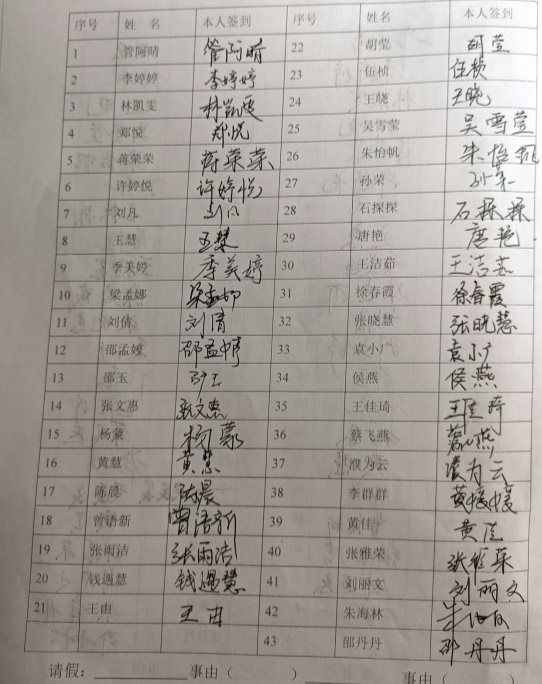 序号 姓 名 本人签到 序号 姓名 本人签到
1 管阿晴 管阿晴 22 胡莹 胡莹
2 李婷婷 李婷婷 23 伍桢 伍桢
3 林凯雯 林凯雯 24 王晓 王晓
4 郑悦 郑悦 25 吴雪莹 吴雪莹
5 蒋荣荣 蒋荣荣 26 朱怡帆 朱怡帆
6 许婷悦 许婷悦 27 孙荣 孙荣
7 刘凡 刘凡 28 石探探 石探探
8 王慧 王慧 29 唐艳 唐艳
9 季美婷 季美婷 30 王洁茹 王洁茹
10 梁孟娜 梁孟娜 31 徐春霞 徐春霞
11 刘倩 刘倩 32 张晓慧 张晓慧
12 邵孟婷 邵孟婷 33 袁小广 袁小广
13 邵玉 邵玉 34 侯燕 侯燕
14 张文惠 张文惠 35 王佳琦 王佳琦
15 杨蒙 杨蒙 36 蔡飞燕 蔡飞燕
16 黄慧 黄慧 37 濮为云 濮为云
17 陈晨 陈晨 38 李群群 黄媛媛
18 曾语新 曾语新 39 黄佳 黄佳
19 张雨洁 张雨洁 40 张雅荣 张雅荣
20 钱遇慧 钱遇慧 41 刘丽文 刘丽文
21 王由 王由 42 朱海林
43 邵丹丹 邵丹丹
请假：__________ 事由（ ） __________ 事由（